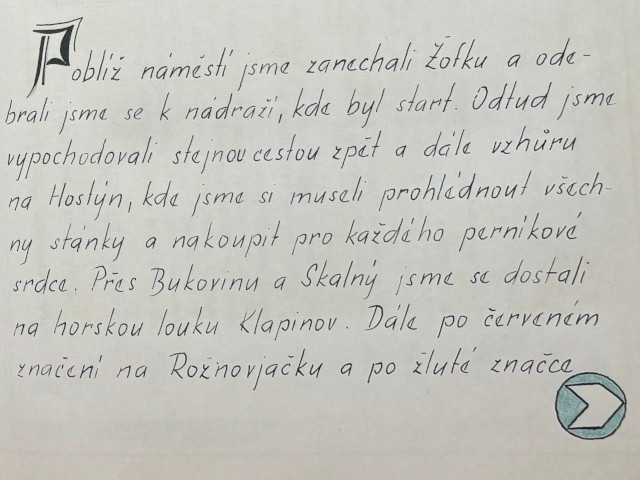 Poblíž náměstí jsme zanechali Žofku a ode-
brali jsme se k nádraží, kde byl start. Odtud jsme
vypochodovali stejnou cestou zpět a dále vzhůru
na Hostýn, kde jsme si museli prohlédnout všech-
ny stánky a nakoupit pro každého perníkové
srdce. Přes Bukovinu a Skalný jsme se dostali
na horskou louku Klapinov. Dále po červeném
značení na Rožnovjačku a po žluté značce